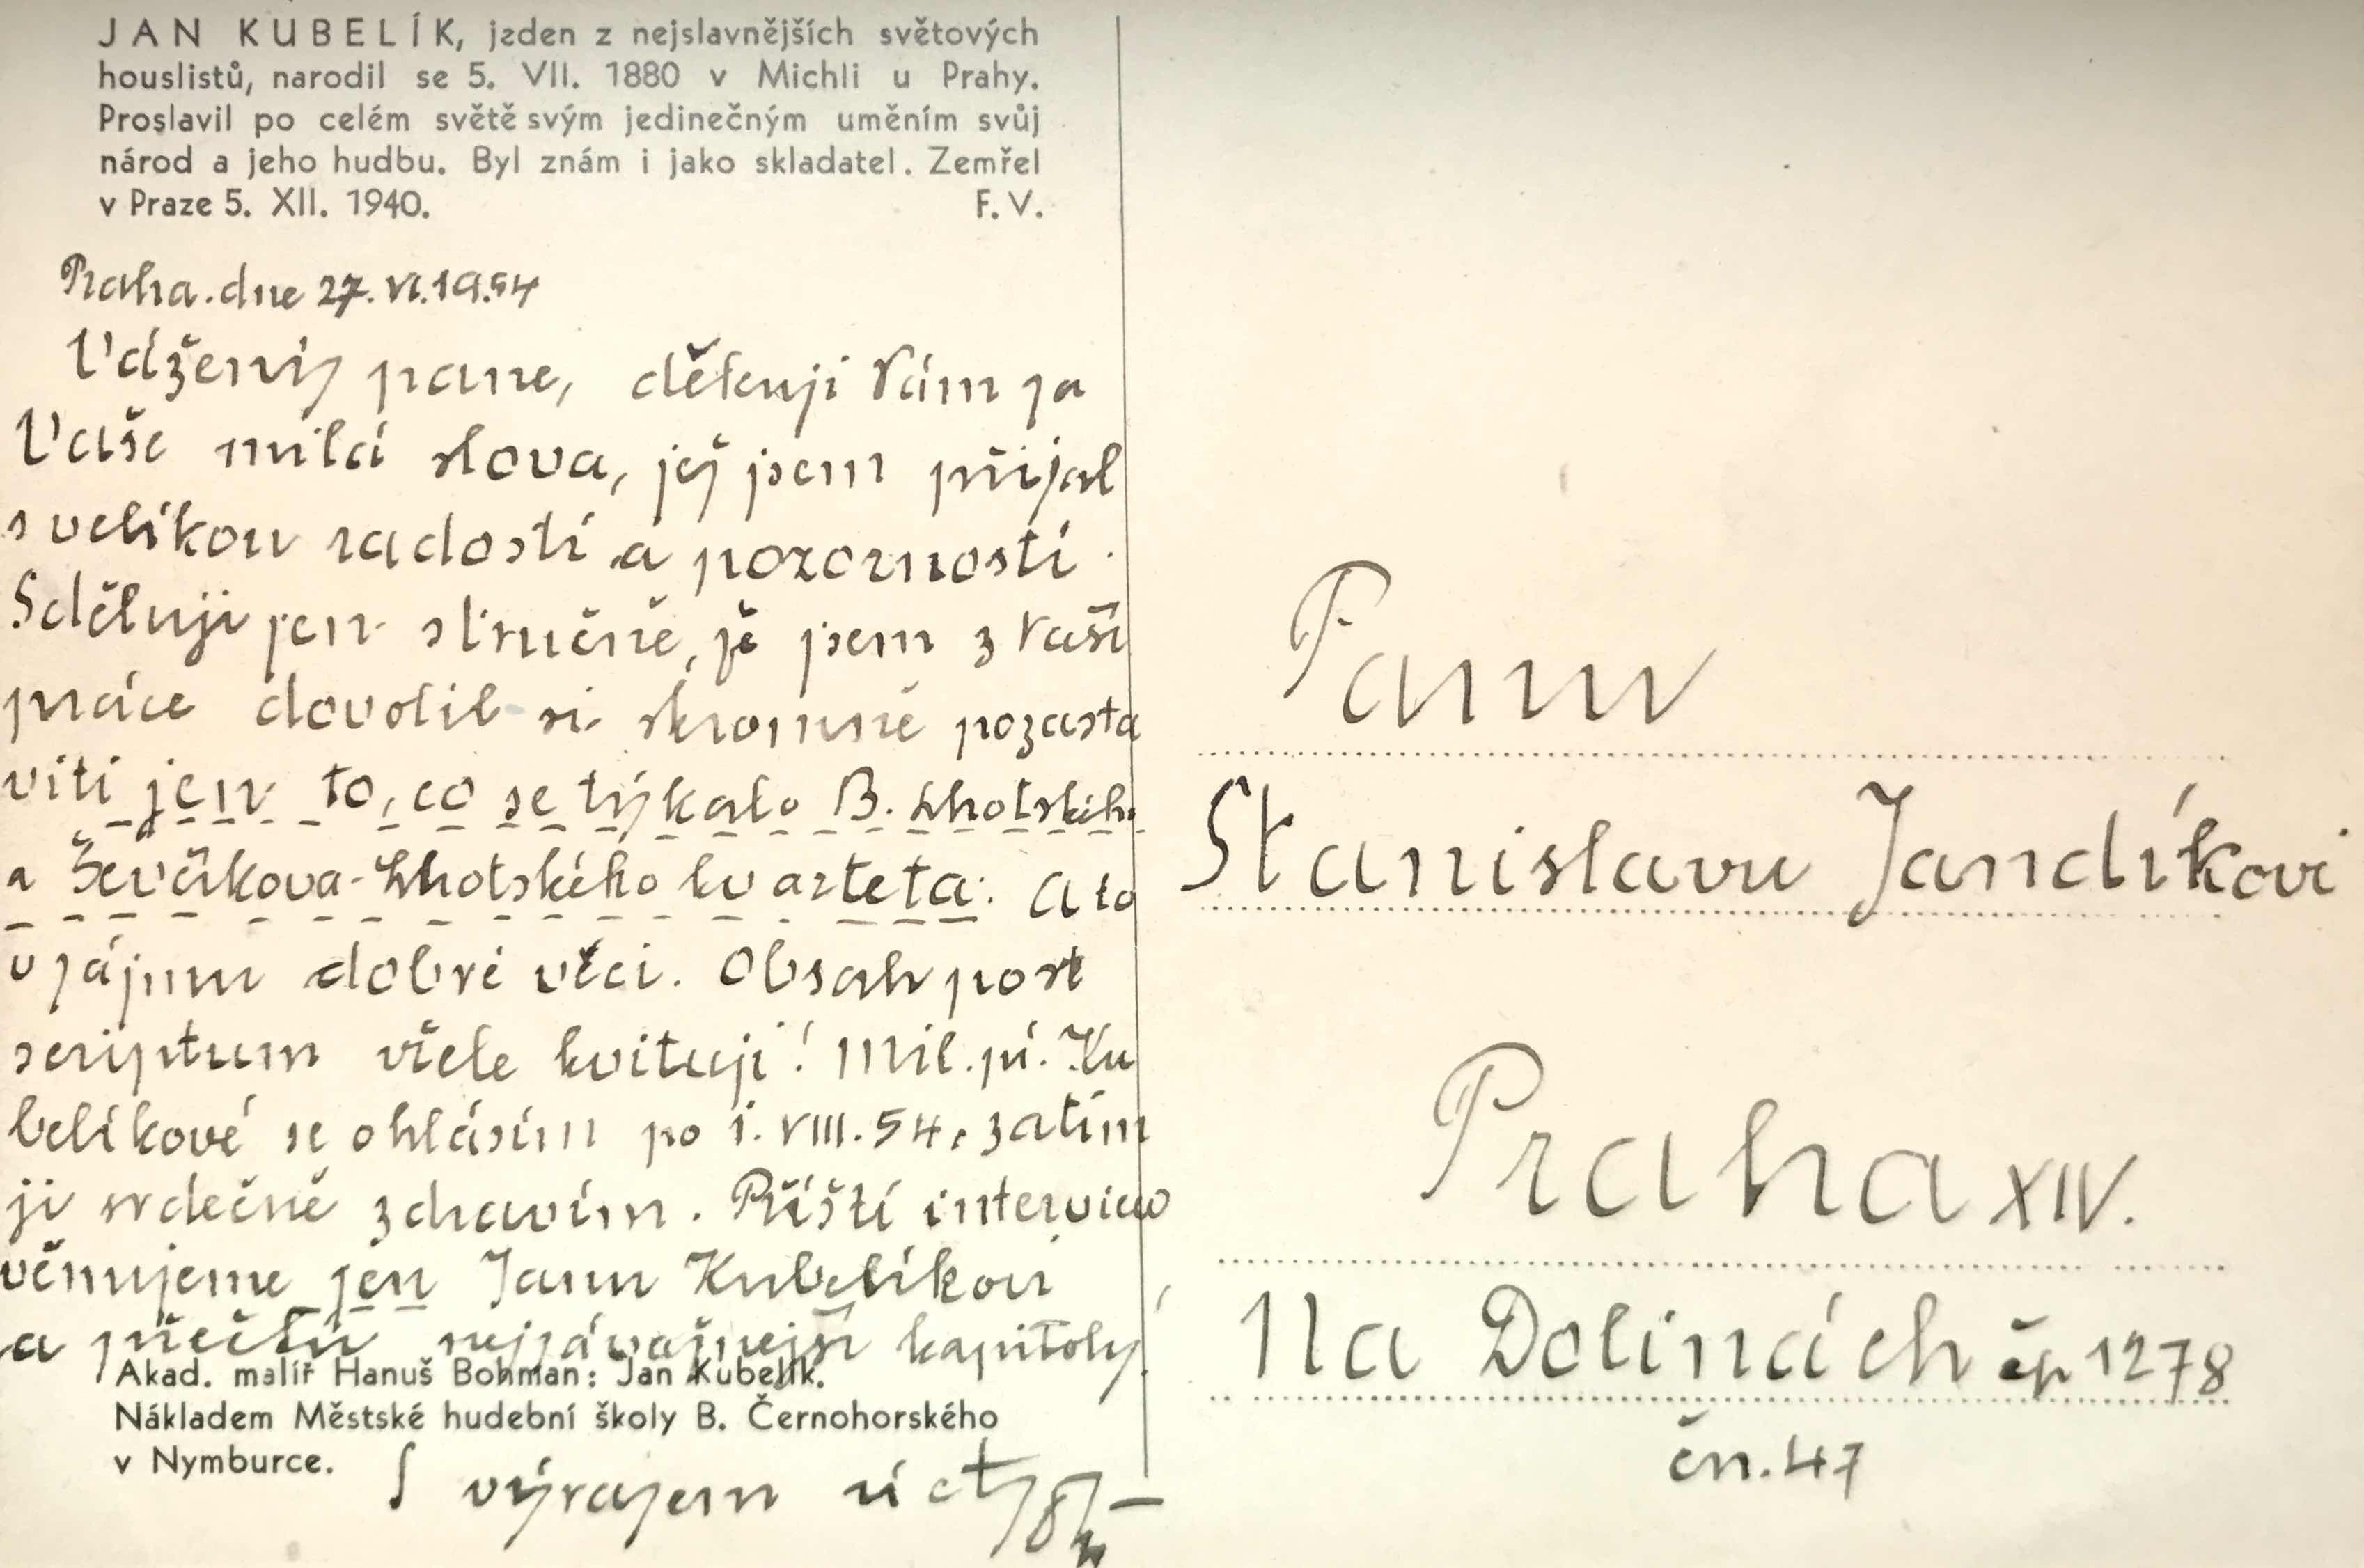 JAN KUBELÍK, jeden z nejslavnějších světových
houslistů, narodil se 5. VII. 1880 v Michli u Prahy.
Proslavil po celém světě svým jedinečným uměním svůj
národ a jeho hudbu. Byl znám i jako skladatel. Zemřel
v Praze 5. XII. 1940. F. V.
Praha. dne 27. VI. 1954
Vážený pane, děkuji Vám za
Vaše milá slova, jež jsem přijal
s velikou radostí a pozorností.
Sděluji jen stručně, že jsem z Vaší
práce dovolil si skromně pozasta
viti jen to, co se týkalo B. Lhotského
a Ševčíkova-Lhotského kvarteta: A to
v zájmu dobré věci. Obsah post
scriptum vřele kvituji! Mil. pí. Ku
belíkové se ohlásím po 1. VIII. 54, zatím
ji srdečně zdravím. Příští interview
věnujeme jen Janu Kubelíkovi
a přečtu nejzávažnejší kapitoly!
Akad. malíř Hanuš Bohman: Jan Kubelík.
Nákladem Městské hudební školy B. Černohorského
v Nymburce.
S výrazem úcty
Panu
Stanislavu Jandíkovi
Praha XIV.
Na Dolinách čp 1278
čn. 47